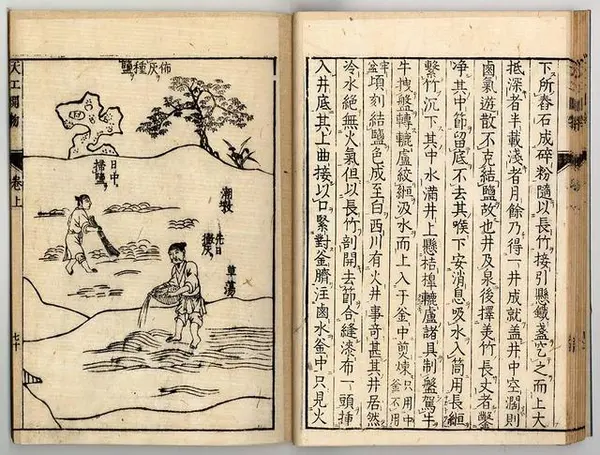 下所舂石成碎粉隨以長竹接引懸鐵盞穵之而上大
抵深者半載淺者月餘乃得一井成就盖井中空濶則
鹵氣遊散不克結鹽故也井及泉後擇美竹長丈者鑿
淨其中節留底不去其喉下安消息吸水入筒用長縆
繫竹沉下其中水滿井上懸桔槔轆轤諸具制盤駕牛
牛拽盤轉轆轤絞縆汲水而上入于釜中煎煉只用中釜不用
釜頃刻結鹽色成至白西川有火井事奇甚其井居然
冷水絕無火氣但以長竹剖開去節合縫漆布一頭插
入井底其上曲接以口緊對釜臍注鹵水釜中只見火
佈灰種鹽
潮墩
草蕩
先日
撒灰
日中
掃鹽
天工開物
卷上
七十